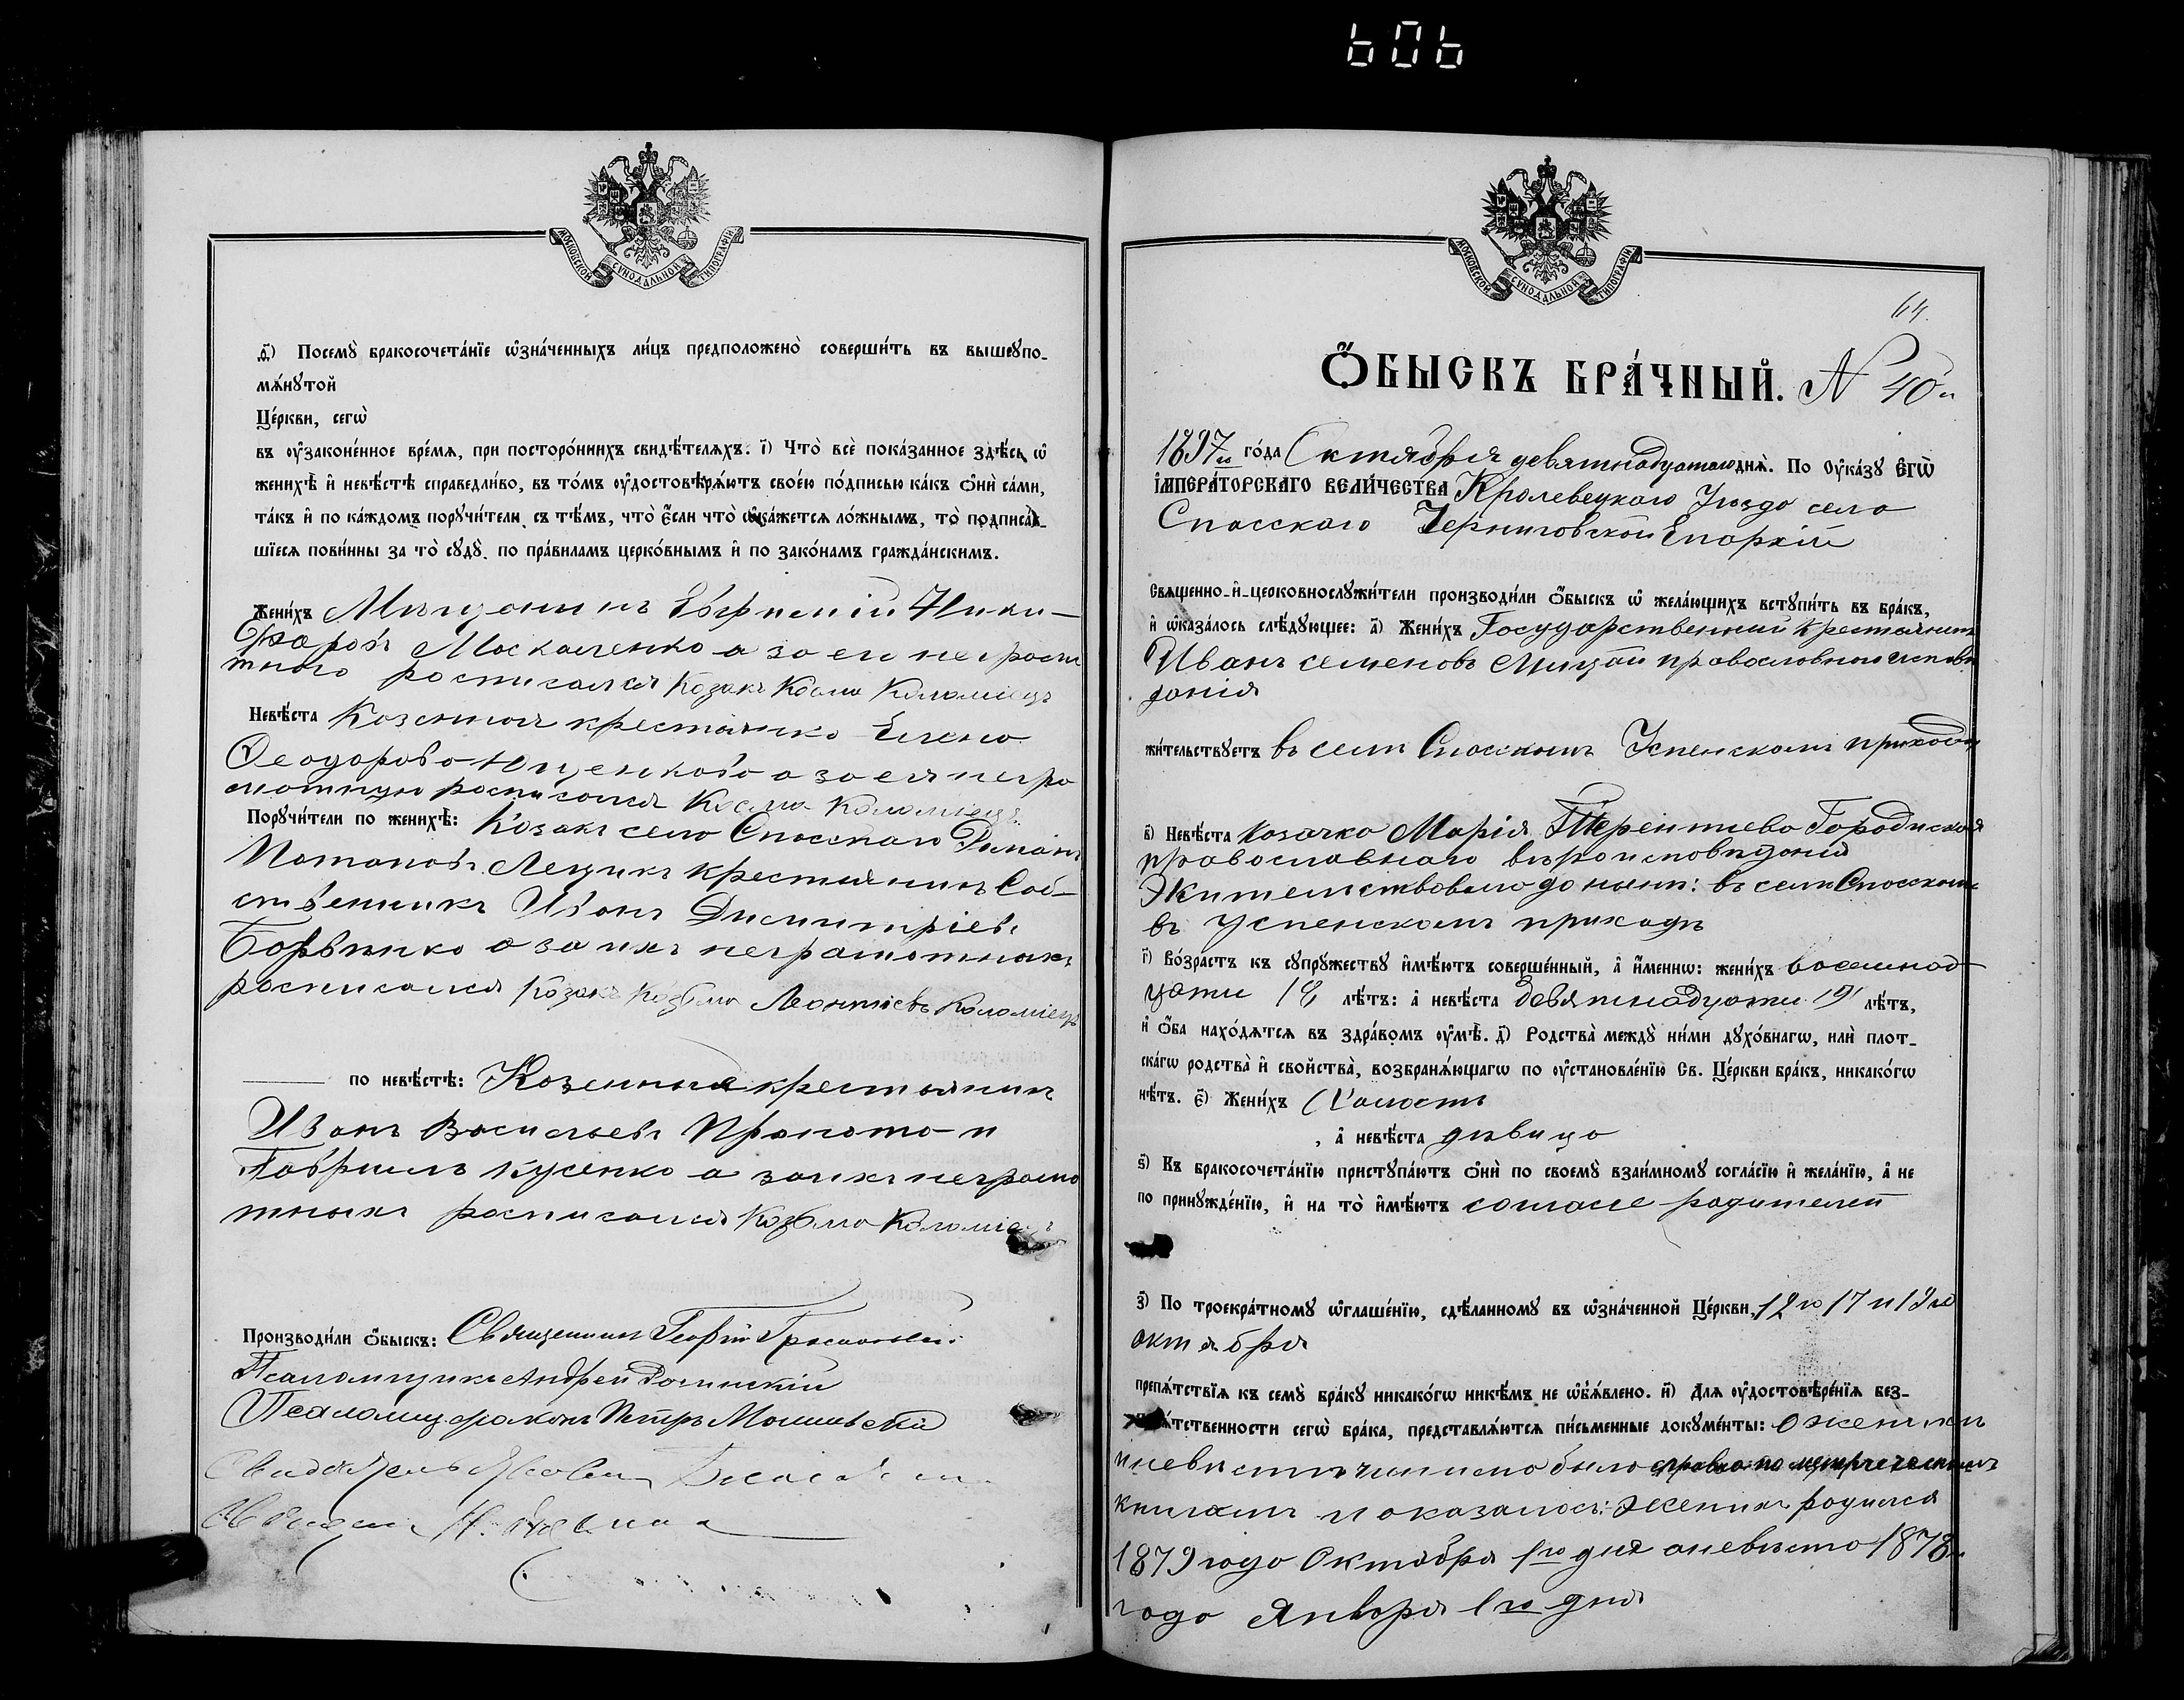 606
МОСКОВСКОЙ СѴНОДАЛЬНОЙ ТИПОГРАФІИ
ѳ҃) Посемꙋ̀ бракосочета́нїе ѡ҆зна́ченныхъ ли́цъ предположено̀ соверши́ть въ вышеꙋпо-
мѧ́нꙋтой
Це́ркви, сегѡ̀
въ ᲂу҆законе́нное вре́мѧ, при посторо́ннихъ свидѣ́телѧхъ. і҃) Что̀ всѐ пока́занное здѣ́сь ѡ҆
женихѣ̀ и҆ невѣ́стѣ справедли́во, въ то́мъ ᲂу҆достовѣрѧ́ютъ свое́ю по́дписью ка́къ ѻ҆нѝ са́ми,
та́къ и҆ по ка́ждомъ порꙋчи́тели, съ тѣ́мъ, что̀ є҆́сли что̀ ѡ҆ка́жетсѧ ло́жнымъ, то̀ подписа́в-
шїесѧ пови́нны за то̀ сꙋдꙋ̀, по пра́виламъ церко́внымъ и҆ по зако́намъ гражда́нскимъ.
Жени́хъ Мѣщанинъ Евфимій Ники-
форовъ Москаленко а за его неграмо
тного росписался Козакъ Косма Коломіецъ
Невѣ́ста Казенная крестянка Елена
Феодорова Ющенкова а за ея негра
мотную росписался Косма Коломіецъ
Порꙋчи́тели по женихѣ̀: Козакъ села Спасскаго Романъ
Потаповъ Лещикъ крестянинъ Соб-
ственникъ Иванъ Димитріевъ
а за ихъ неграмотныхъ
росписался Козакъ Козьма Леонтіевъ Коломіецъ
по невѣ́стѣ: Казенный крестянинъ
Иванъ Васильевъ и
Гавріилъ Кусенко а за ихъ неграмо
тныхъ росписался Козьма Коломіецъ
Производи́ли ѻ҆́быскъ: Священникъ Георгій
Псаломщикъ Андрей
Псаломщ Петръ
МОСКОВСКОЙ СѴНОДАЛЬНОЙ ТИПОГРАФІИ
64.
Ѻ҆́БЫСКЪ БРА́ЧНЫЙ. N 40й
1897го го́да Октября девятнадцатаго днѧ̀. По Оу҆ка́зꙋ Є҆гѡ̀
І҆МПЕРА́ТОРСКАГО ВЕЛИ́ЧЕСТВА Кролевецкаго Уѣзда села
Спасскаго Черниговской Епархіи
Свѧщенно-и҆-церковнослꙋжи́тели производи́ли ѻ҆́быскъ ѡ҆ жела́ющихъ встꙋпи́ть въ бра́къ,
и҆ ѡ҆каза́лось слѣ́дꙋющее: а҃) Жени́хъ Государственный крестянинъ
Иванъ Семеновъ православнаго исповѣ
данія
жи́тельствꙋетъ въ селѣ Спасскомъ Успенскомъ приходѣ
в҃) Невѣ́ста козачка Марія Терентиева Городиская
православнаго вѣроисповѣданія
Жительствовала до нынѣ: въ селѣ Спасскомъ
въ Успенскомъ приходѣ
г҃) Во́зрастъ къ сꙋпрꙋ́жествꙋ и҆мѣ́ютъ соверше́нный, а҆ и҆́меннѡ: жени́хъ восемнад
цати 18 лѣ́тъ: а҆ невѣ́ста девятнадцати 19 лѣ́тъ,
и҆ ѻ҆́ба нахо́дѧтсѧ въ здра́вомъ ᲂу҆мѣ̀. д҃) Родства̀ междꙋ̀ ни́ми дꙋхо́внагѡ, и҆лѝ плот-
ска́гѡ родства̀ и҆ сво́йства̀, возбранѧ́ющагѡ по ᲂу҆становле́нїю Св. Це́ркви бра́къ, никако́гѡ
нѣ́тъ. є҃) Жени́хъ Холостъ
, а҆ невѣ́ста дѣвица
ѕ҃) Къ бракосочета́нїю пристꙋпа́ютъ ѻ҆нѝ по своемꙋ̀ взаи́мномꙋ согла́сїю и҆ жела́нїю, а҆ не
по принꙋжде́нїю, и҆ на то̀ и҆мѣ́ютъ согласіе родителей
з҃) По троекра́тномꙋ ѡ҆глаше́нїю, сдѣ́ланномꙋ въ ѡ҆зна́ченной Це́ркви, 12го 17 и 19го
октября
препѧ́тствїѧ къ семꙋ̀ бра́кꙋ никако́гѡ никѣ́мъ не ѡ҆бъѧ́влено. и҃) Длѧ ᲂу҆достовѣре́нїѧ без-
пѧ́тственности сегѡ̀ бра́ка, представлѧ́ютсѧ пи́сьменные докꙋме́нты: О женихѣ
и невѣстѣ было справка по метрическимъ
книгамъ и оказалось: Женихъ родился
1879 года Октября 1го дня а невѣста 1878
года Января 1го дня